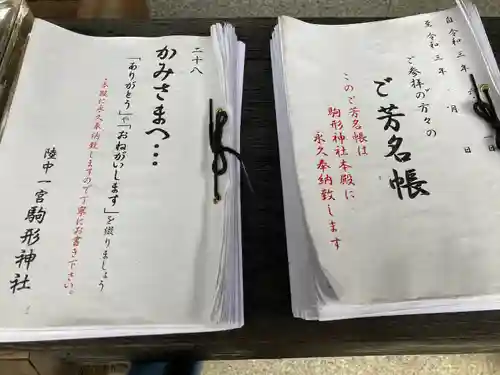 自令和三年 月 日
至令和三年 月 日
ご参拝の方々の
ご芳名帳
このご芳名帳は
駒形神社本殿に
永久奉納致します
二十八
かみさまへ…
「ありがとう」や「おねがいします」を綴りましょう
本殿に永久奉納致しますので丁寧にお書き下さい。
陸中一宮駒形神社